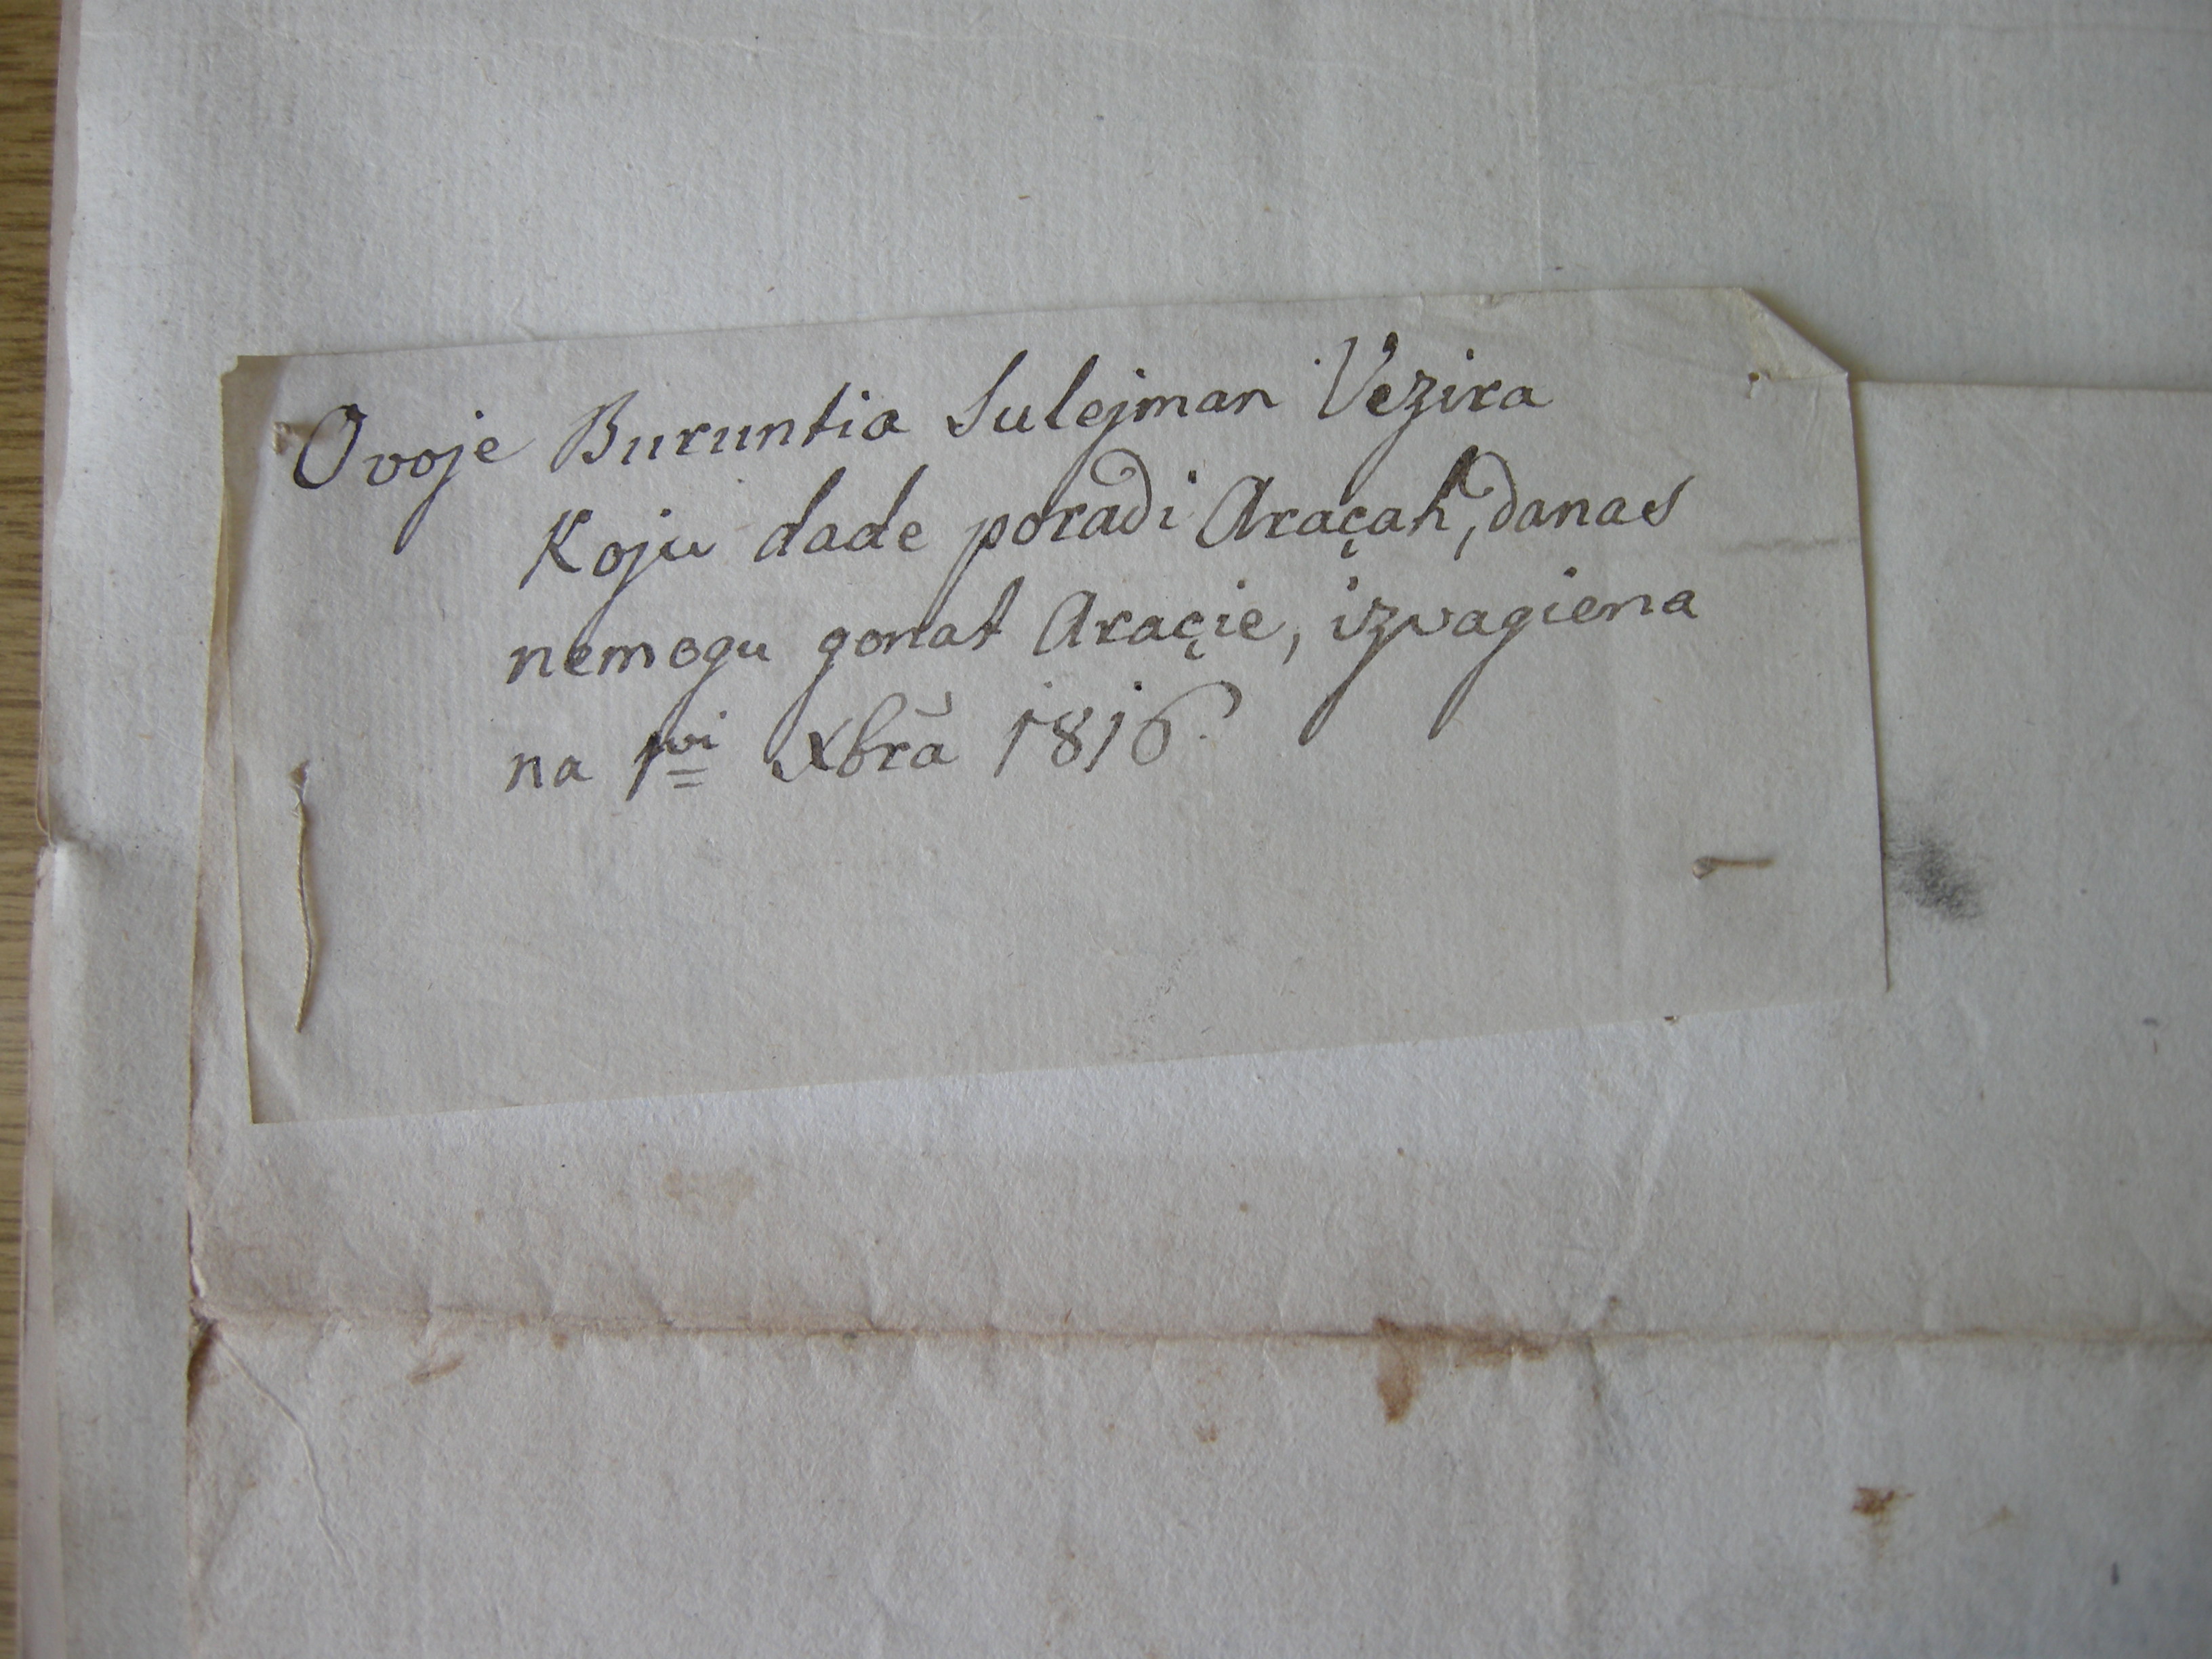 Ovoje Buruntia Sulejman Vezira
Koju dade poradi Araçah, danas
nemogu gonat Araçie, izvagiena
na 1vi Xbra 1816.